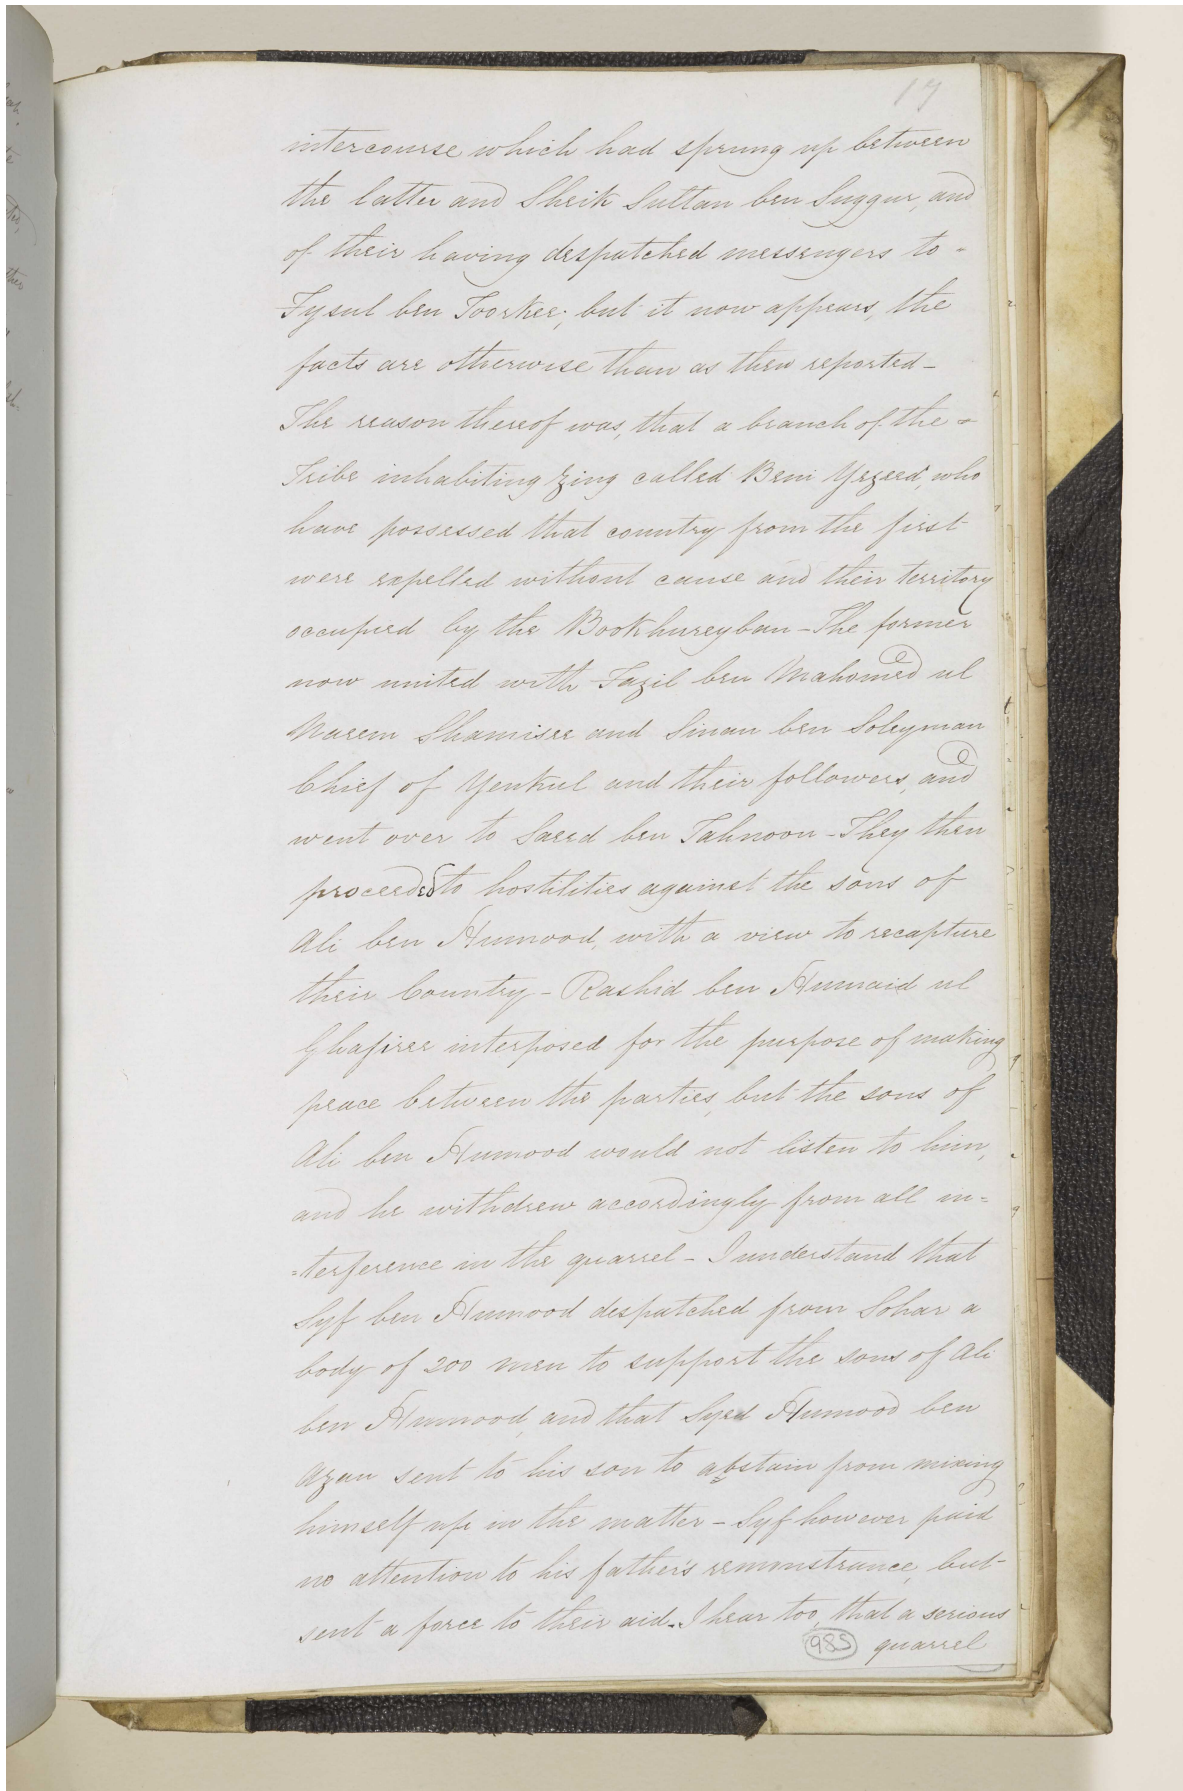 17
intercourse which had sprung up between
the latter and Sheik Sultan ben Suggur, and
of their having despatched messengers to -
Fysul ben Toorkee; but it now appears, the
facts are otherwise than as then reported -
The reason thereof was, that a branch of the =
Tribe inhabiting Zing called Beni Yezeed, who
have possessed that country from the first
were expelled without cause and their territory
occupied by the Bookhureyban - The former
now united with Fazil ben Mahomed ul
Narem Shamisee and Sinan ben Soleyman
Chief of Yenkul and their followers, and
went over to Saeed ben Tahnoon - They then
proceeded to hostilities against the sons of
Ali ben Humood, with a view to recapture
their Country - Rashid ben Humaid ul
Ghafiree interposed for the purpose of making
peace between the parties, but the sons of
Ali ben Humood would not listen to him,
and he withdrew accordingly from all in=
=terference in the quarrel - I understand that
Syf ben Humood despatched from Sohar a
body of 200 men to support the sons of Ali
ben Humood, and that Syed Humood ben
Azan sent to his son to abstain from mixing
himself up in the matter - Syf however paid
no attention to his father's remonstrance, but
sent a force to their aid. I hear too, that a serious
985 quarrel